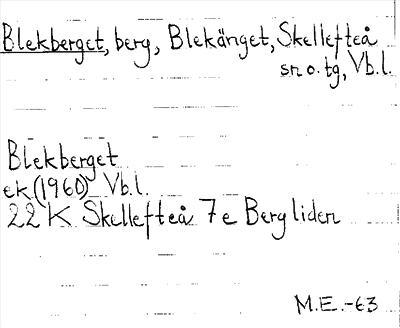 Blekberget, berg, Blekänget, Skellefteå
sn o. tg, Vb.l.
Blekberget
ek(1960) Vb.l.
22 K Skellefteå 7e Bergliden
M.E.-63